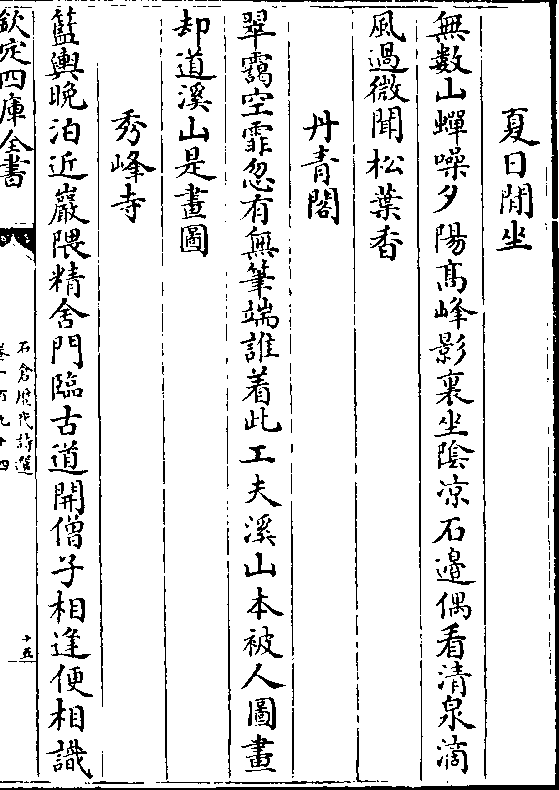 夏日閒坐
無數山蟬噪夕陽高峰影裏坐陰凉石邉偶看清泉滴
風過微聞松葉香
丹青閣
翠靄空霏忽有無筆端誰着此工夫溪山本被人圖畫
却道溪山是畫圖
秀峰寺
籃輿晚泊近巖隈精舍門臨古道開僧子相逢便相識
欽定四庫全書
石倉歴代詩選
十五